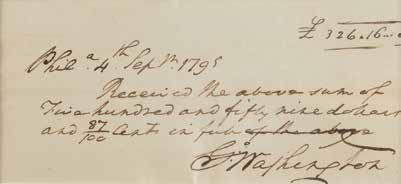 £ 326.16
Phil.a 4th Sepr. 1795
Received the above sum of
Two hundred and fifty nine dollars
and 87/100 Cents in full of the above
Go. Washington